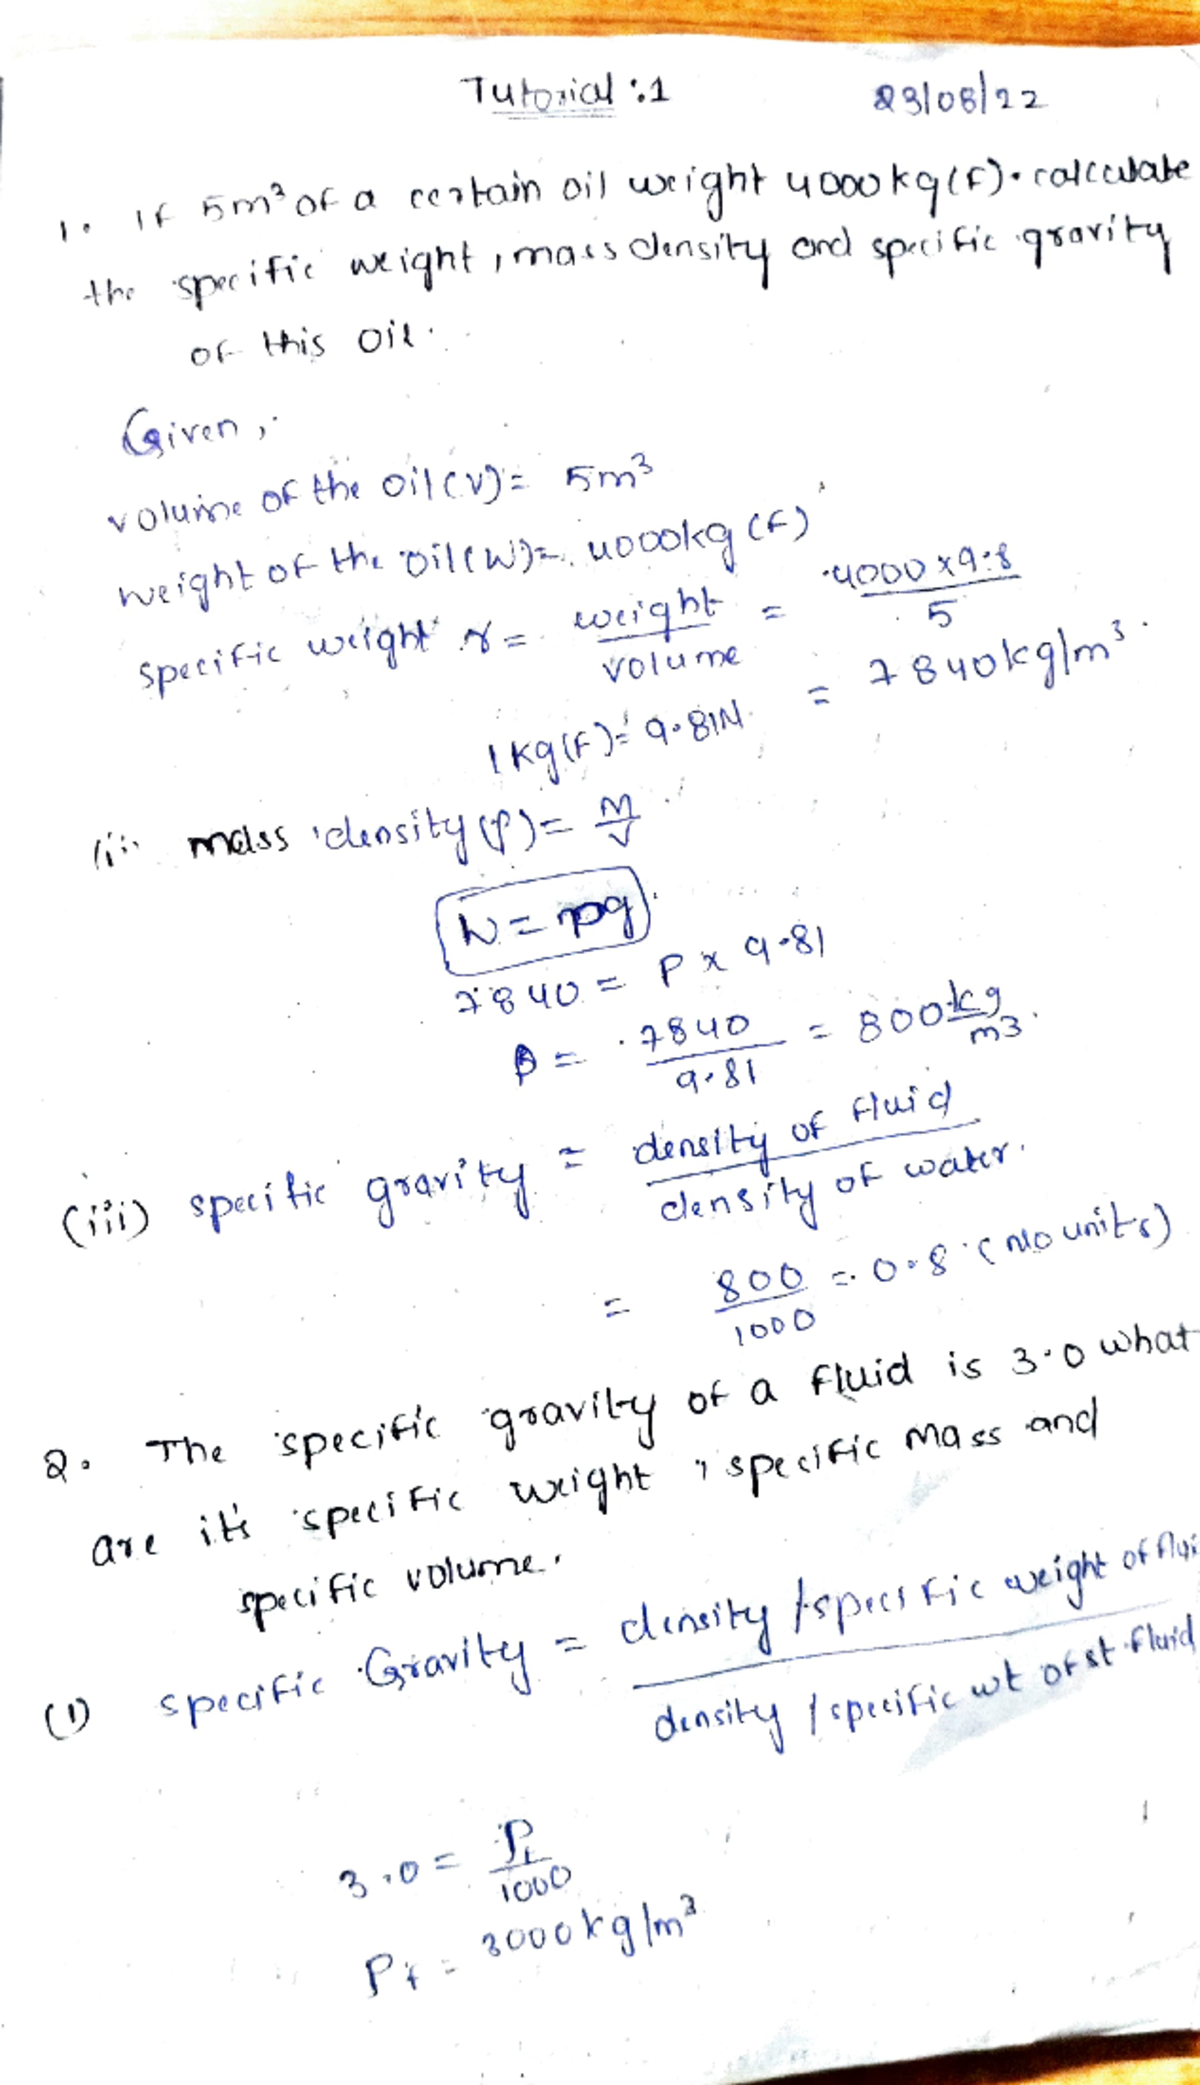 Tutorial :1 23/08/22
1. If 5m³ of a certain oil weight 4000kg(F). calculate
the specific weight, mass density and specific gravity
of this oil.
Given,
volume of the oil(v) = 5m³
weight of the oil(w) = 4000kg(F)
specific weight γ = weight/volume = 4000x9.8/5
1kg(F) = 9.81N = 7840kg/m³.
(ii mass density(ρ) = M/V
W = ρg
7840 = ρ x 9.81
ρ = 7840/9.81 = 800kg/m3.
(iii) specific gravity = density of fluid/density of water.
= 800/1000 = 0.8 (No units)
2. The specific gravity of a fluid is 3.0 what
are it's specific weight, specific mass and
specific volume.
(1) specific Gravity = density/specific weight of flui/density/specific wt of st.fluid
3.0 = ρf/1000
ρf = 3000kg/m³